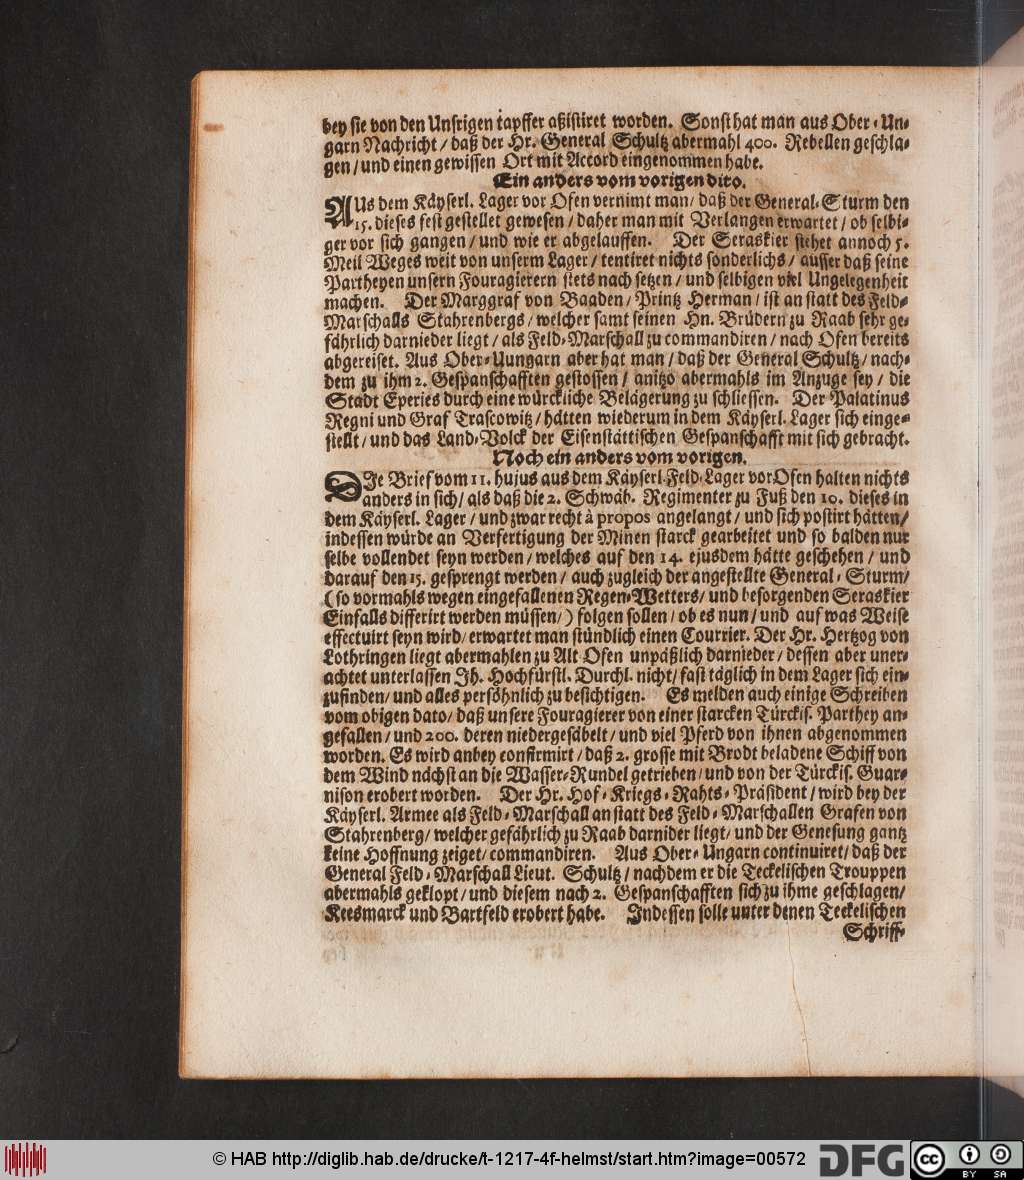 bey sie von den Unsrigen tapffer aßistiret worden. Sonst hat man aus Ober-Un-
garn Nachricht / daß der Hr. General Schultz abermahl 400. Rebellen geschla-
gen / und einen gewissen Ort mit Accord eingenommen habe.
Ein anders vom vorigen dito.
AUs dem Käyserl. Lager vor Ofen vernimt man / daß der General-Sturm den
15. dieses fest gestellet gewesen / daher man mit Verlangen erwartet / ob selbi-
ger vor sich gangen / und wie er abgelauffen. Der Seraskier stehet annoch 5.
Meil Weges weit von unserm Lager / tentiret nichts sonderlichs / ausser daß seine
Partheyen unsern Fouragierern stets nach setzen / und selbigen viel Ungelegenheit
machen. Der Marggraf von Baaden / Printz Herman / ist an statt des Feld-
Marschalls Stahrenbergs / welcher samt seinen Hn. Brüdern zu Raab sehr ge-
fährlich darnieder liegt / als Feld-Marschall zu commandiren / nach Ofen bereits
abgereiset. Aus Ober-Uungarn aber hat man / daß der General Schultz / nach-
dem zu ihm 2. Gespanschafften gestossen / anitzo abermahls im Anzuge sey / die
Stadt Eperies durch eine würckliche Belägerung zu schliessen. Der Palatinus
Regni und Graf Trascowitz / hätten wiederum in dem Käyserl. Lager sich einge-
stellt / und das Land-Volck der Eisenstättischen Gespanschafft mit sich gebracht.
Noch ein anders vom vorigen.
DIe Brief vom 11. hujus aus dem Käyserl. Feld-Lager vor Ofen halten nichts
anders in sich / als daß die 2. Schwäb. Regimenter zu Fuß den 10. dieses in
dem Käyserl. Lager / und zwar recht à propos angelangt / und sich postirt hätten /
indessen würde an Verfertigung der Minen starck gearbeitet und so balden nur
selbe vollendet seyn werden / welches auf den 14. ejusdem hätte geschehen / und
darauf den 15. gesprengt werden / auch zugleich der angestellte General-Sturm /
( so vormahls wegen eingefallenen Regen-Wetters / und besorgenden Seraskier
Einfalls differirt werden müssen / ) folgen sollen / ob es nun / und auf was Weise
effectuirt seyn wird / erwartet man stündlich einen Courrier. Der Hr. Hertzog von
Lothringen liegt abermahlen zu Alt Ofen unpäßlich darnieder / dessen aber uner-
achtet unterlassen Ih. Hochfürstl. Durchl. nicht / fast täglich in dem Lager sich ein-
zufinden / und alles persöhnlich zu besichtigen. Es melden auch einige Schreiben
vom obigen dato / daß unsere Fouragierer von einer starcken Türckis. Parthey an-
gefallen / und 200. deren niedergesäbelt / und viel Pferd von ihnen abgenommen
worden. Es wird anbey confirmirt / daß 2. grosse mit Brodt beladene Schiff von
dem Wind nächst an die Wasser-Rundel getrieben / und von der Türckis. Guar-
nison erobert worden. Der Hr. Hof-Kriegs-Rahts-Präsident / wird bey der
Käyserl. Armee als Feld-Marschall an statt des Feld-Marschallen Grafen von
Stahrenberg / welcher gefährlich zu Raab darnider liegt / und der Genesung gantz
keine Hoffnung zeiget / commandiren. Aus Ober-Ungarn continuiret / daß der
General Feld-Marschall Lieut. Schultz / nachdem er die Teckelischen Trouppen
abermahls geklopt / und diesem nach 2. Gespanschafften sich zu ihme geschlagen /
Keesmarck und Bartfeld erobert habe. Indessen solle unter denen Teckelischen
Schriff-
© HAB http://diglib.hab.de/drucke/t-1217-4f-helmst/start.htm?image=00572
DFG
cc
BY
SA